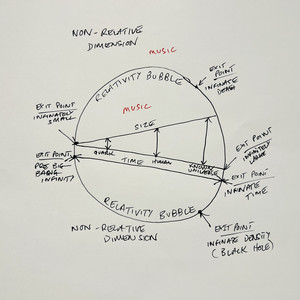 NON-RELATIVE
DIMENSION
MUSIC
RELATIVITY BUBBLE
EXIT
POINT
INFINATE
MUSIC
EXIT POINT
INFINATELY
SMALL
SIZE
EXIT POINT
QUARK
HUMAN
KNOWN
UNIVERSE
EXIT POINT
INFINATELY
LARGE
EXIT POINT
PRE BIG
BANG
TIME
EXIT POINT
INFINATE
TIME
RELATIVITY BUBBLE
NON-RELATIVE
DIMENSION
EXIT POINT
INFINATE DENSITY
(BLACK HOLE)